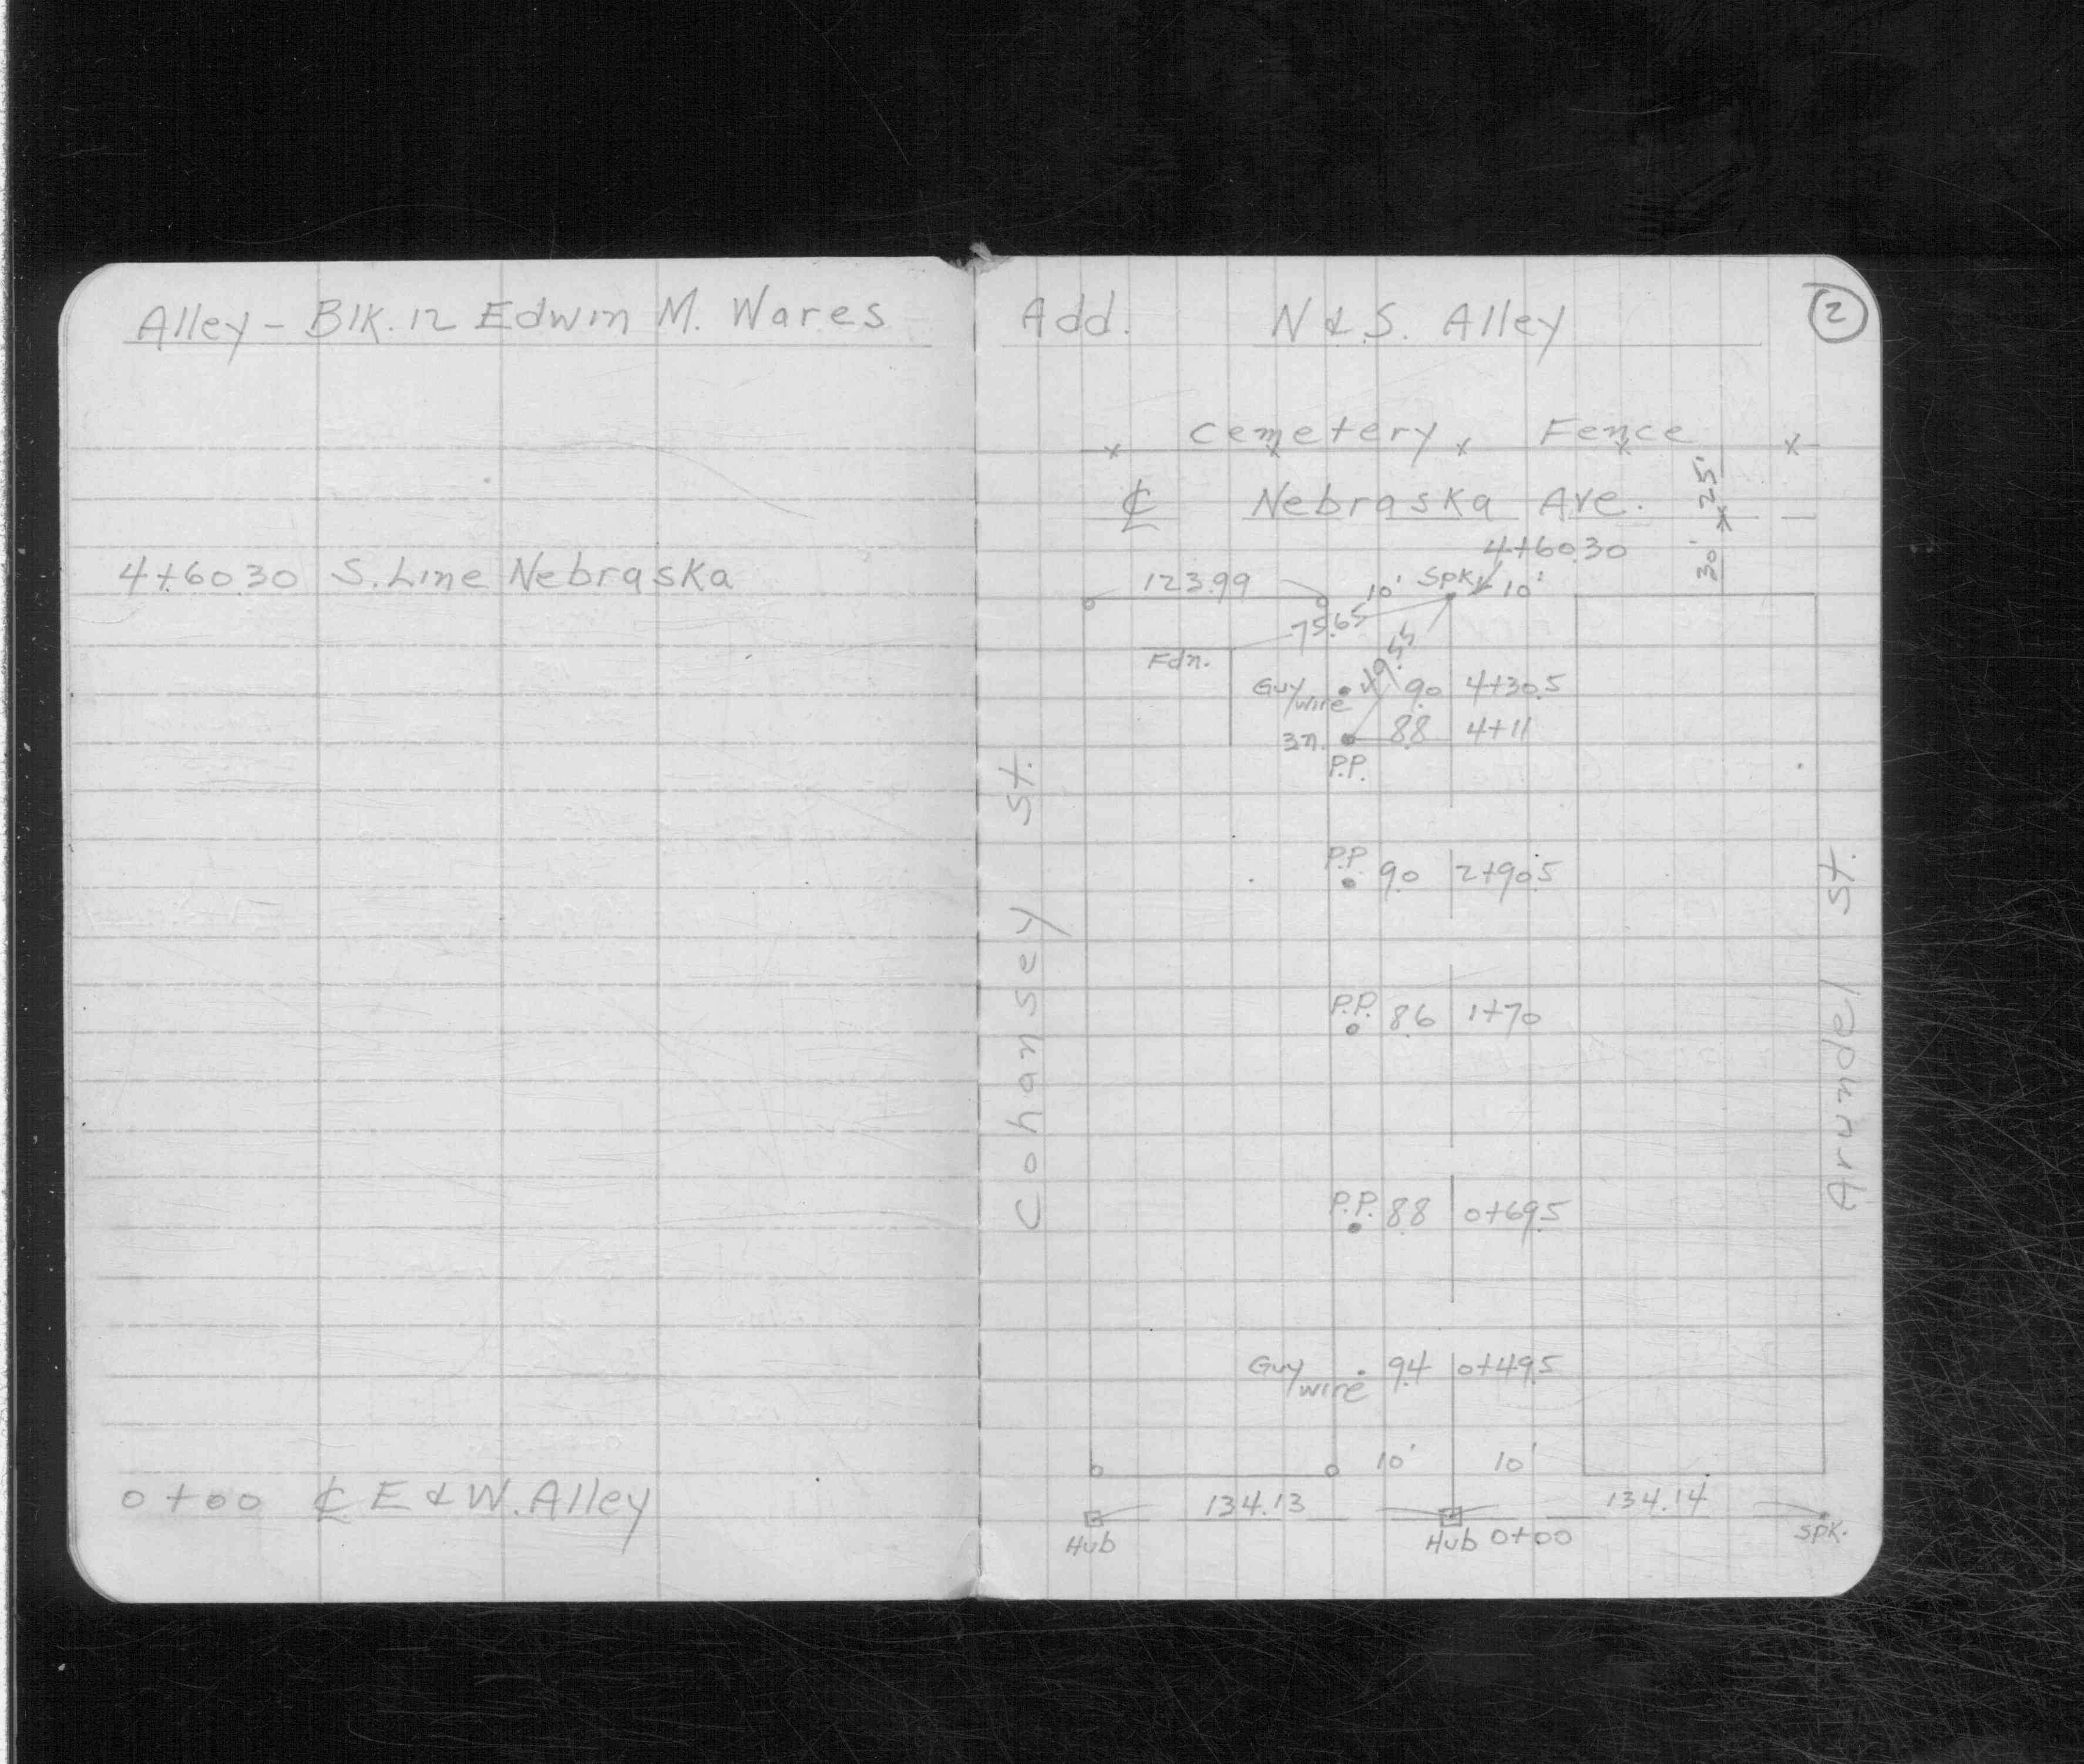 Alley - Blk. 12 Edwin M. Wares Add. N & S. Alley 2
4+60.30 S. Line Nebraska
0+00 ℄ E & W. Alley
Cemetery Fence
25'
℄ Nebraska Ave.
30'
4+60.30
123.99 10' Spk. 10'
75.65
Fdn.
Guy wire 9.0 4+30.5
3n. 8.8 4+11
P.P.
P.P. 9.0 2+90.5
P.P. 8.6 1+70
P.P. 8.8 0+69.5
Guy wire 9.4 0+49.5
10' 10'
134.13 134.14
Hub Hub 0+00 Spk.
Cohansey St.
Arundel St.